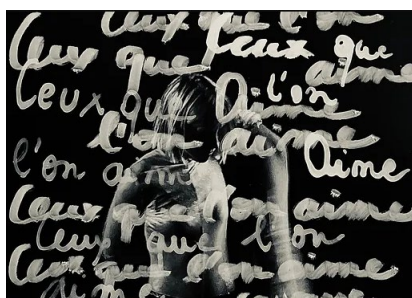 Ceux que l'on
Ceux que Ceux que
aime
Ceux que l'on
Aime
l'on aime
l'on aime Aime
Ceux que l'on aime
Ceux que l'on
Ceux que l'on aime
aime